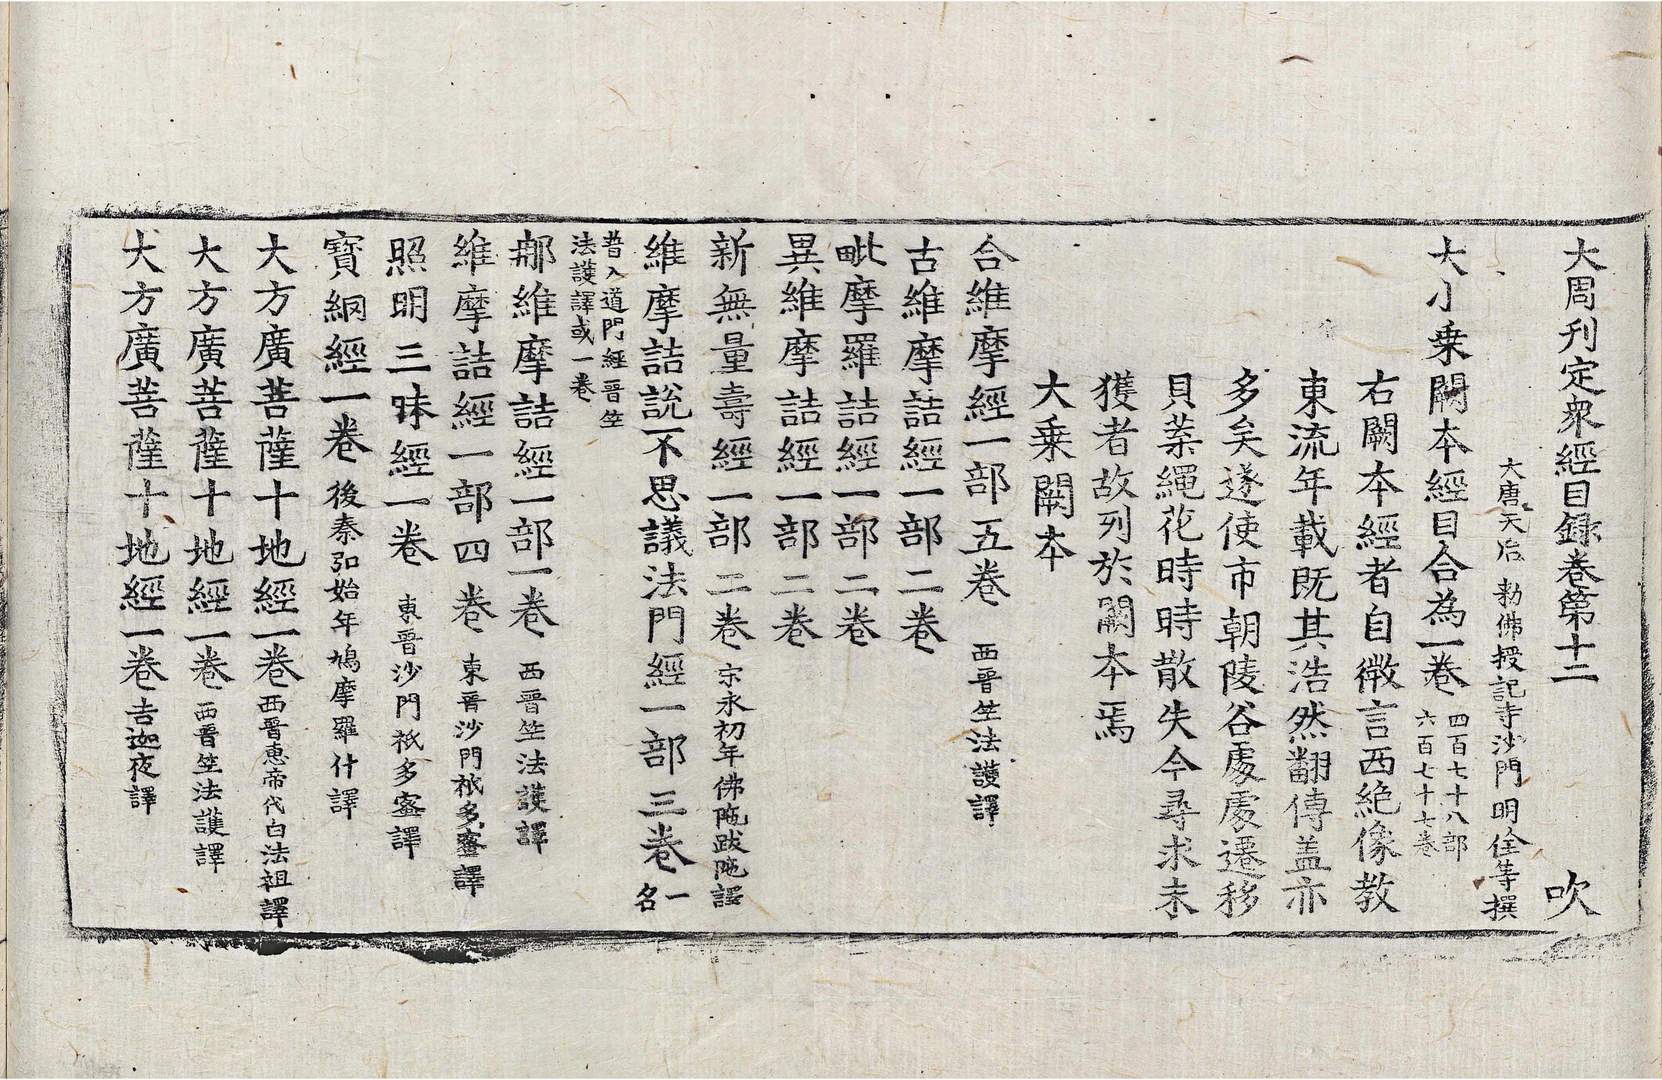 大周刊定衆經目録卷第十二 吹
大唐天后 勑佛授記寺沙門明佺等撰
大小乗闕本經目合為一卷 四百七十八部
六百七十七卷
右闕本經者自微言西絶像教
東流年載既其浩然翻傳盖亦
多矣遂使市朝陵谷處處遷移
貝葉繩花時時散失今尋求未
獲者故列於闕本焉
大乗闕本
合維摩經一部五卷 西晋竺法護譯
古維摩詰經一部二卷
毗摩羅詰經一部二卷
異維摩詰經一部二卷
新無量壽經一部二卷 宋永初年佛陁跋陁譯
維摩詰説不思議法門經一部三卷 一名
普入道門經晋竺
法護譯或一卷
刪維摩詰經一部一卷 西晋竺法護譯
維摩詰經一部四卷 東晋沙門祇多蜜譯
照明三昧經一卷 東晋沙門祇多蜜譯
寶網經一卷 後秦弘始年鳩摩羅什譯
大方廣菩薩十地經一卷 西晋惠帝代白法祖譯
大方廣菩薩十地經一卷 西晋竺法護譯
大方廣菩薩十地經一卷 吉迦夜譯